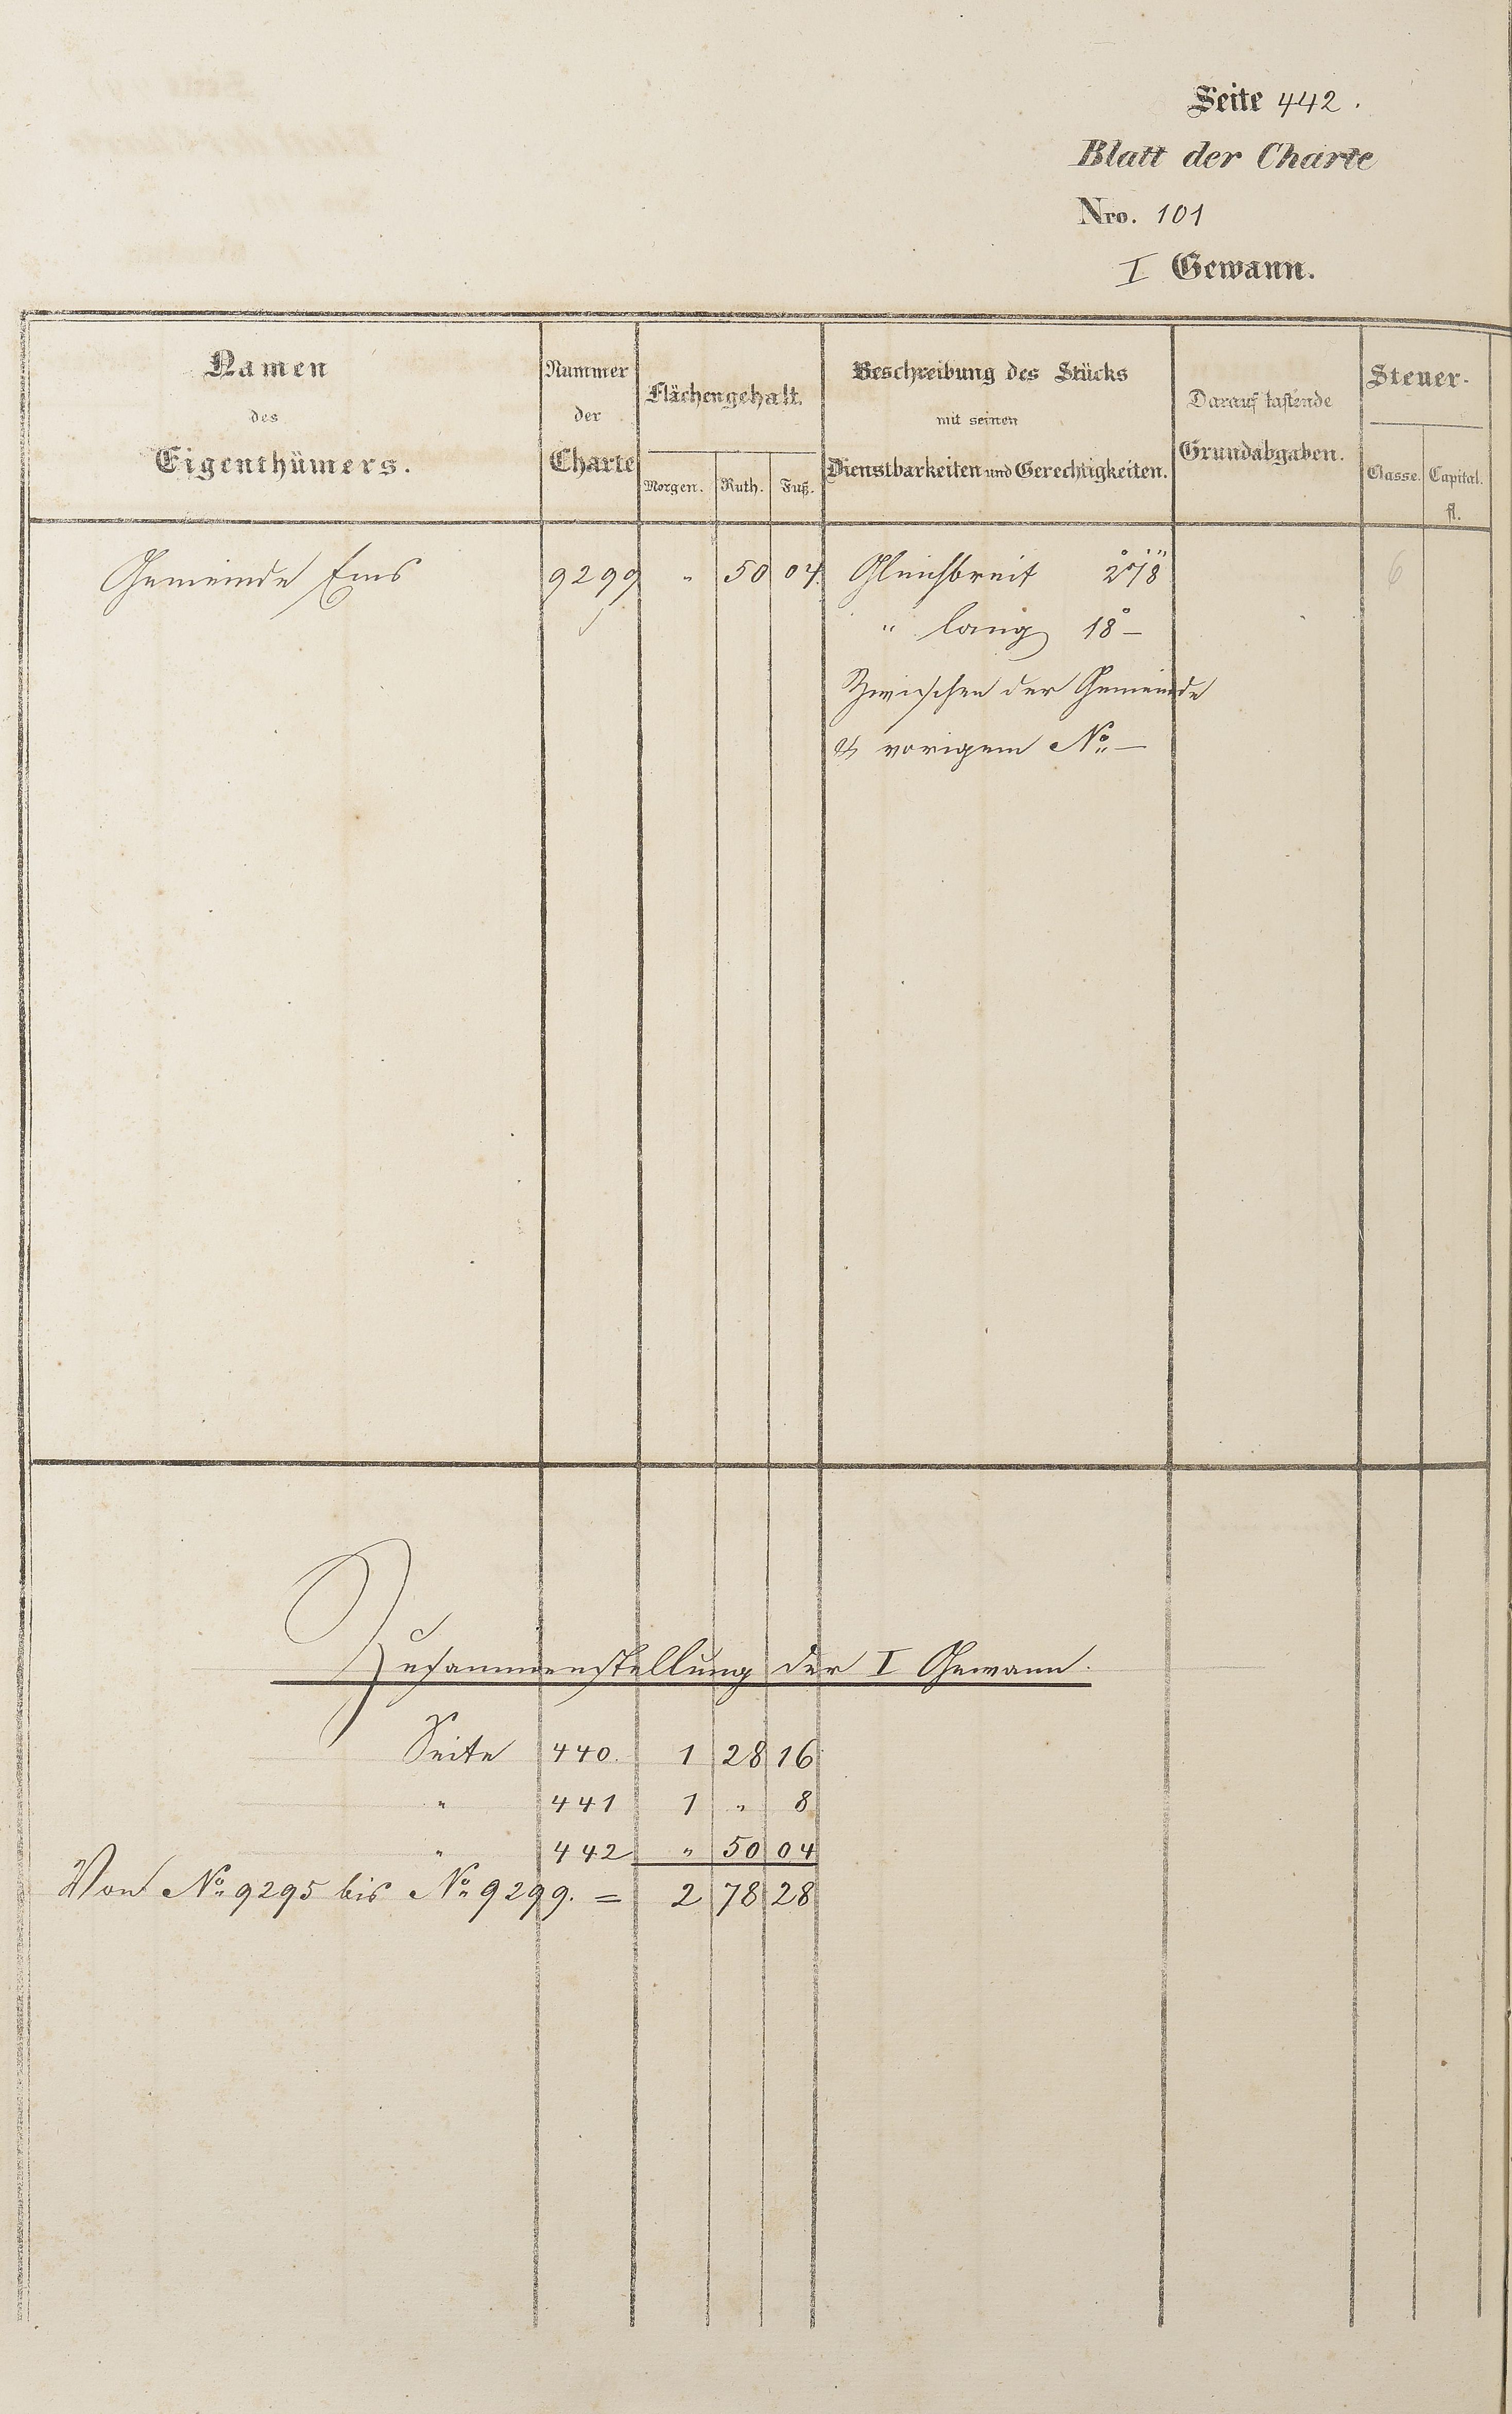 Seite 442.
Blatt der Charte
Nro. 101
I Gewann.
Namen des Eigenthümers. | Nummer der Charte | Flächengehalt. Morgen. Ruth. Fuß. | Beschreibung des Stücks mit seinen Dienstbarkeiten und Gerechtigkeiten. | Darauf lastende Grundabgaben. | Steuer- Classe. Capital. fl.
Gemeinde Ems 9299 " 50 04. Gleichbreit 2° 7' 8'' 6
" lang 18° –
Zwischen der Gemeinde
& vorigem No. –
Zusammenstellung der I Gewann.
Seite 440. 1 28 16
" 441 1 " 8
" 442 " 50 04
Von No. 9295 bis No. 9299. = 2 78 28